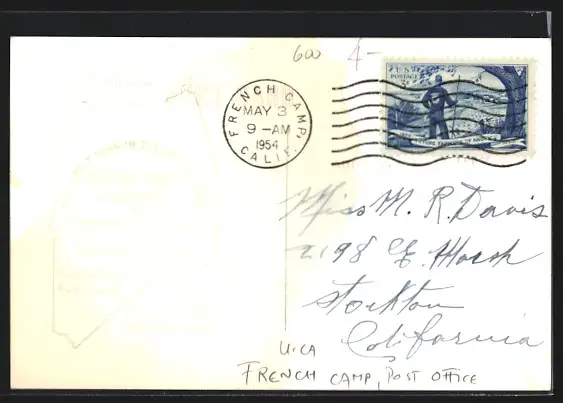 600 4-
FRENCH CAMP,
MAY 3
9-AM
1954
CALIF.
U.S.
POSTAGE
FUTURE FARMERS OF AMERICA
Miss M. R. Davis
2198 E.
Stockton
California
U.CA
FRENCH CAMP, POST OFFICE